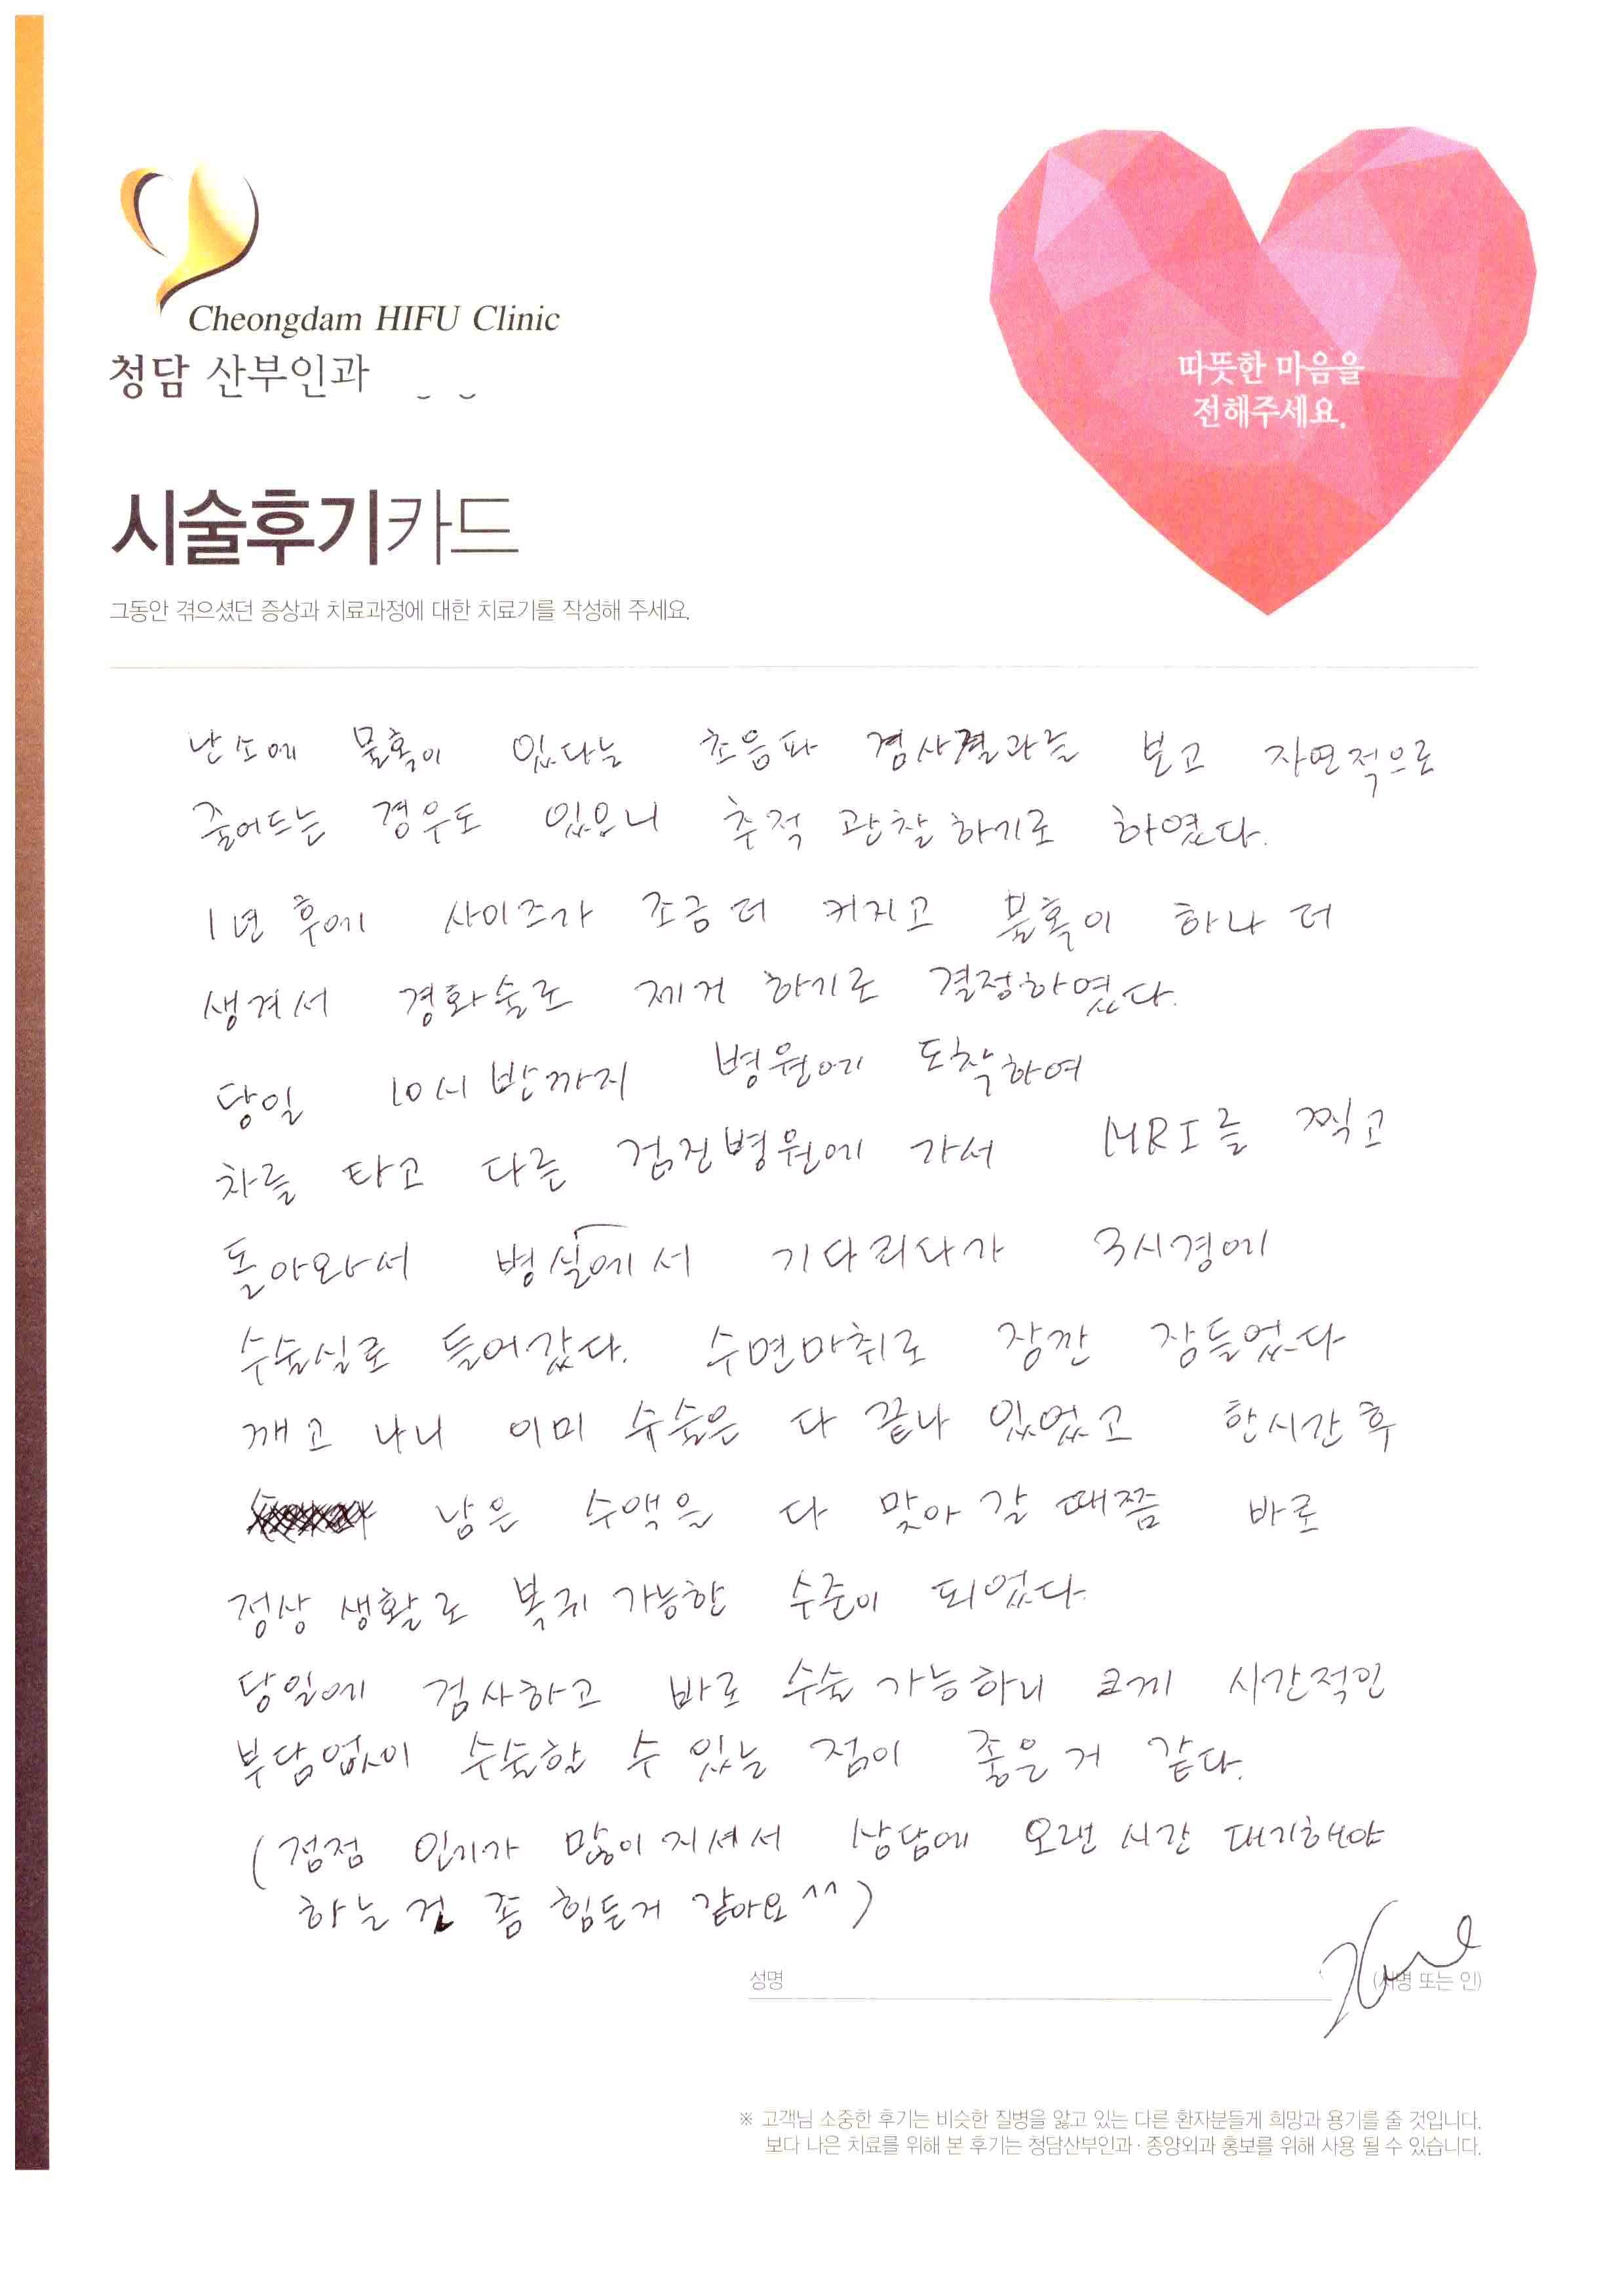 Cheongdam HIFU Clinic
청담 산부인과
따뜻한 마음을
전해주세요.
시술후기카드
그동안 겪으셨던 증상과 치료과정에 대한 치료기를 작성해 주세요.
난소에 물혹이 있다는 초음파 검사결과를 보고 자연적으로
줄어드는 경우도 있으니 추적 관찰하기로 하였다.
1년 후에 사이즈가 조금 더 커지고 물혹이 하나 더
생겨서 경화술로 제거 하기로 결정하였다.
당일 10시 반까지 병원에 도착하여
차를 타고 다른 검진병원에 가서 MRI를 찍고
돌아와서 병실에서 기다리다가 3시경에
수술실로 들어갔다. 수면마취로 잠깐 잠들었다
깨고 나니 이미 수술은 다 끝나 있었고 한시간 후
남은 수액을 다 맞아 갈 때쯤 바로
정상 생활로 복귀 가능한 수준이 되었다.
당일에 검사하고 바로 수술 가능하니 크게 시간적인
부담없이 수술할 수 있는 점이 좋은거 같다.
(점점 인기가 많이 지셔서 상담에 오랜 시간 대기해야
하는 건 좀 힘든거 같아요^^)
성명
(서명 또는 인)
※ 고객님 소중한 후기는 비슷한 질병을 앓고 있는 다른 환자분들게 희망과 용기를 줄 것입니다.
보다 나은 치료를 위해 본 후기는 청담산부인과·종양외과 홍보를 위해 사용 될 수 있습니다.